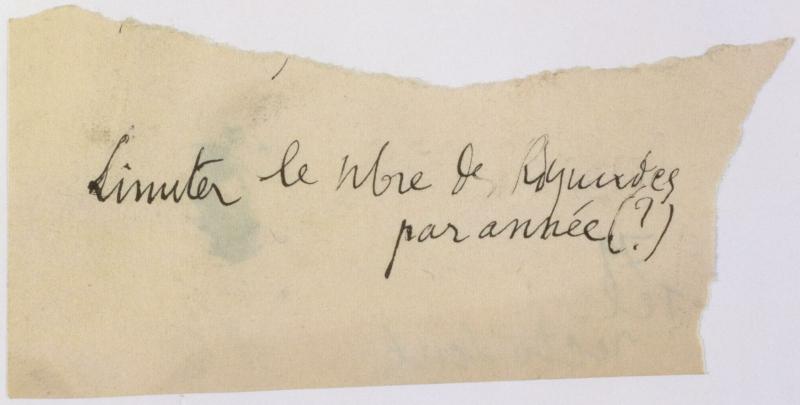 Limiter le nbre de Rdymades
par année (?)